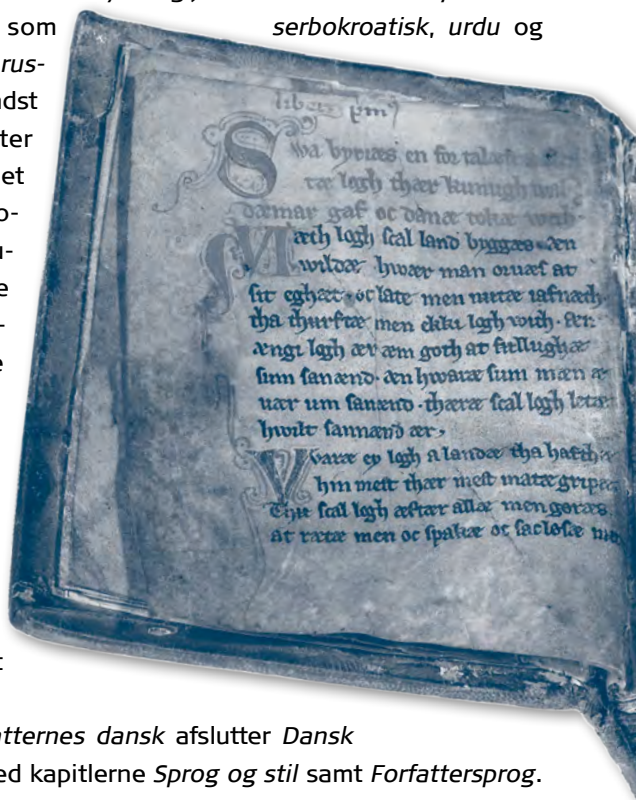 som serbokroatisk, urdu og
rus-
ndst
ter
et
o-
u-
e
-
e
liber
Swa byriæs en for talæ
ræ logh thær kunugh wal
dæmar gaf oc danæ tokæ with
Mæth logh scal land byggæs. æn
wildæ hwær man oruæs at
sit eghæt. oc late men nutæ iafnæth.
tha thurftæ men ekki logh with. æn
ængi logh ær æm goth at fællughæ
sum sanænd. æn hwaræ sum mæn æ
uær um sanænd. thæræ scal logh letæ
hwilt sannænd ær.
Waræ ey logh a landæ tha hafthæ
hin mest thær mest matæ gripæ.
Thy scal logh æftær allæ men gøræs.
at rætæ men oc spakæ oc sacløsæ
t
tternes dansk afslutter Dansk
ed kapitlerne Sprog og stil samt Forfattersprog.